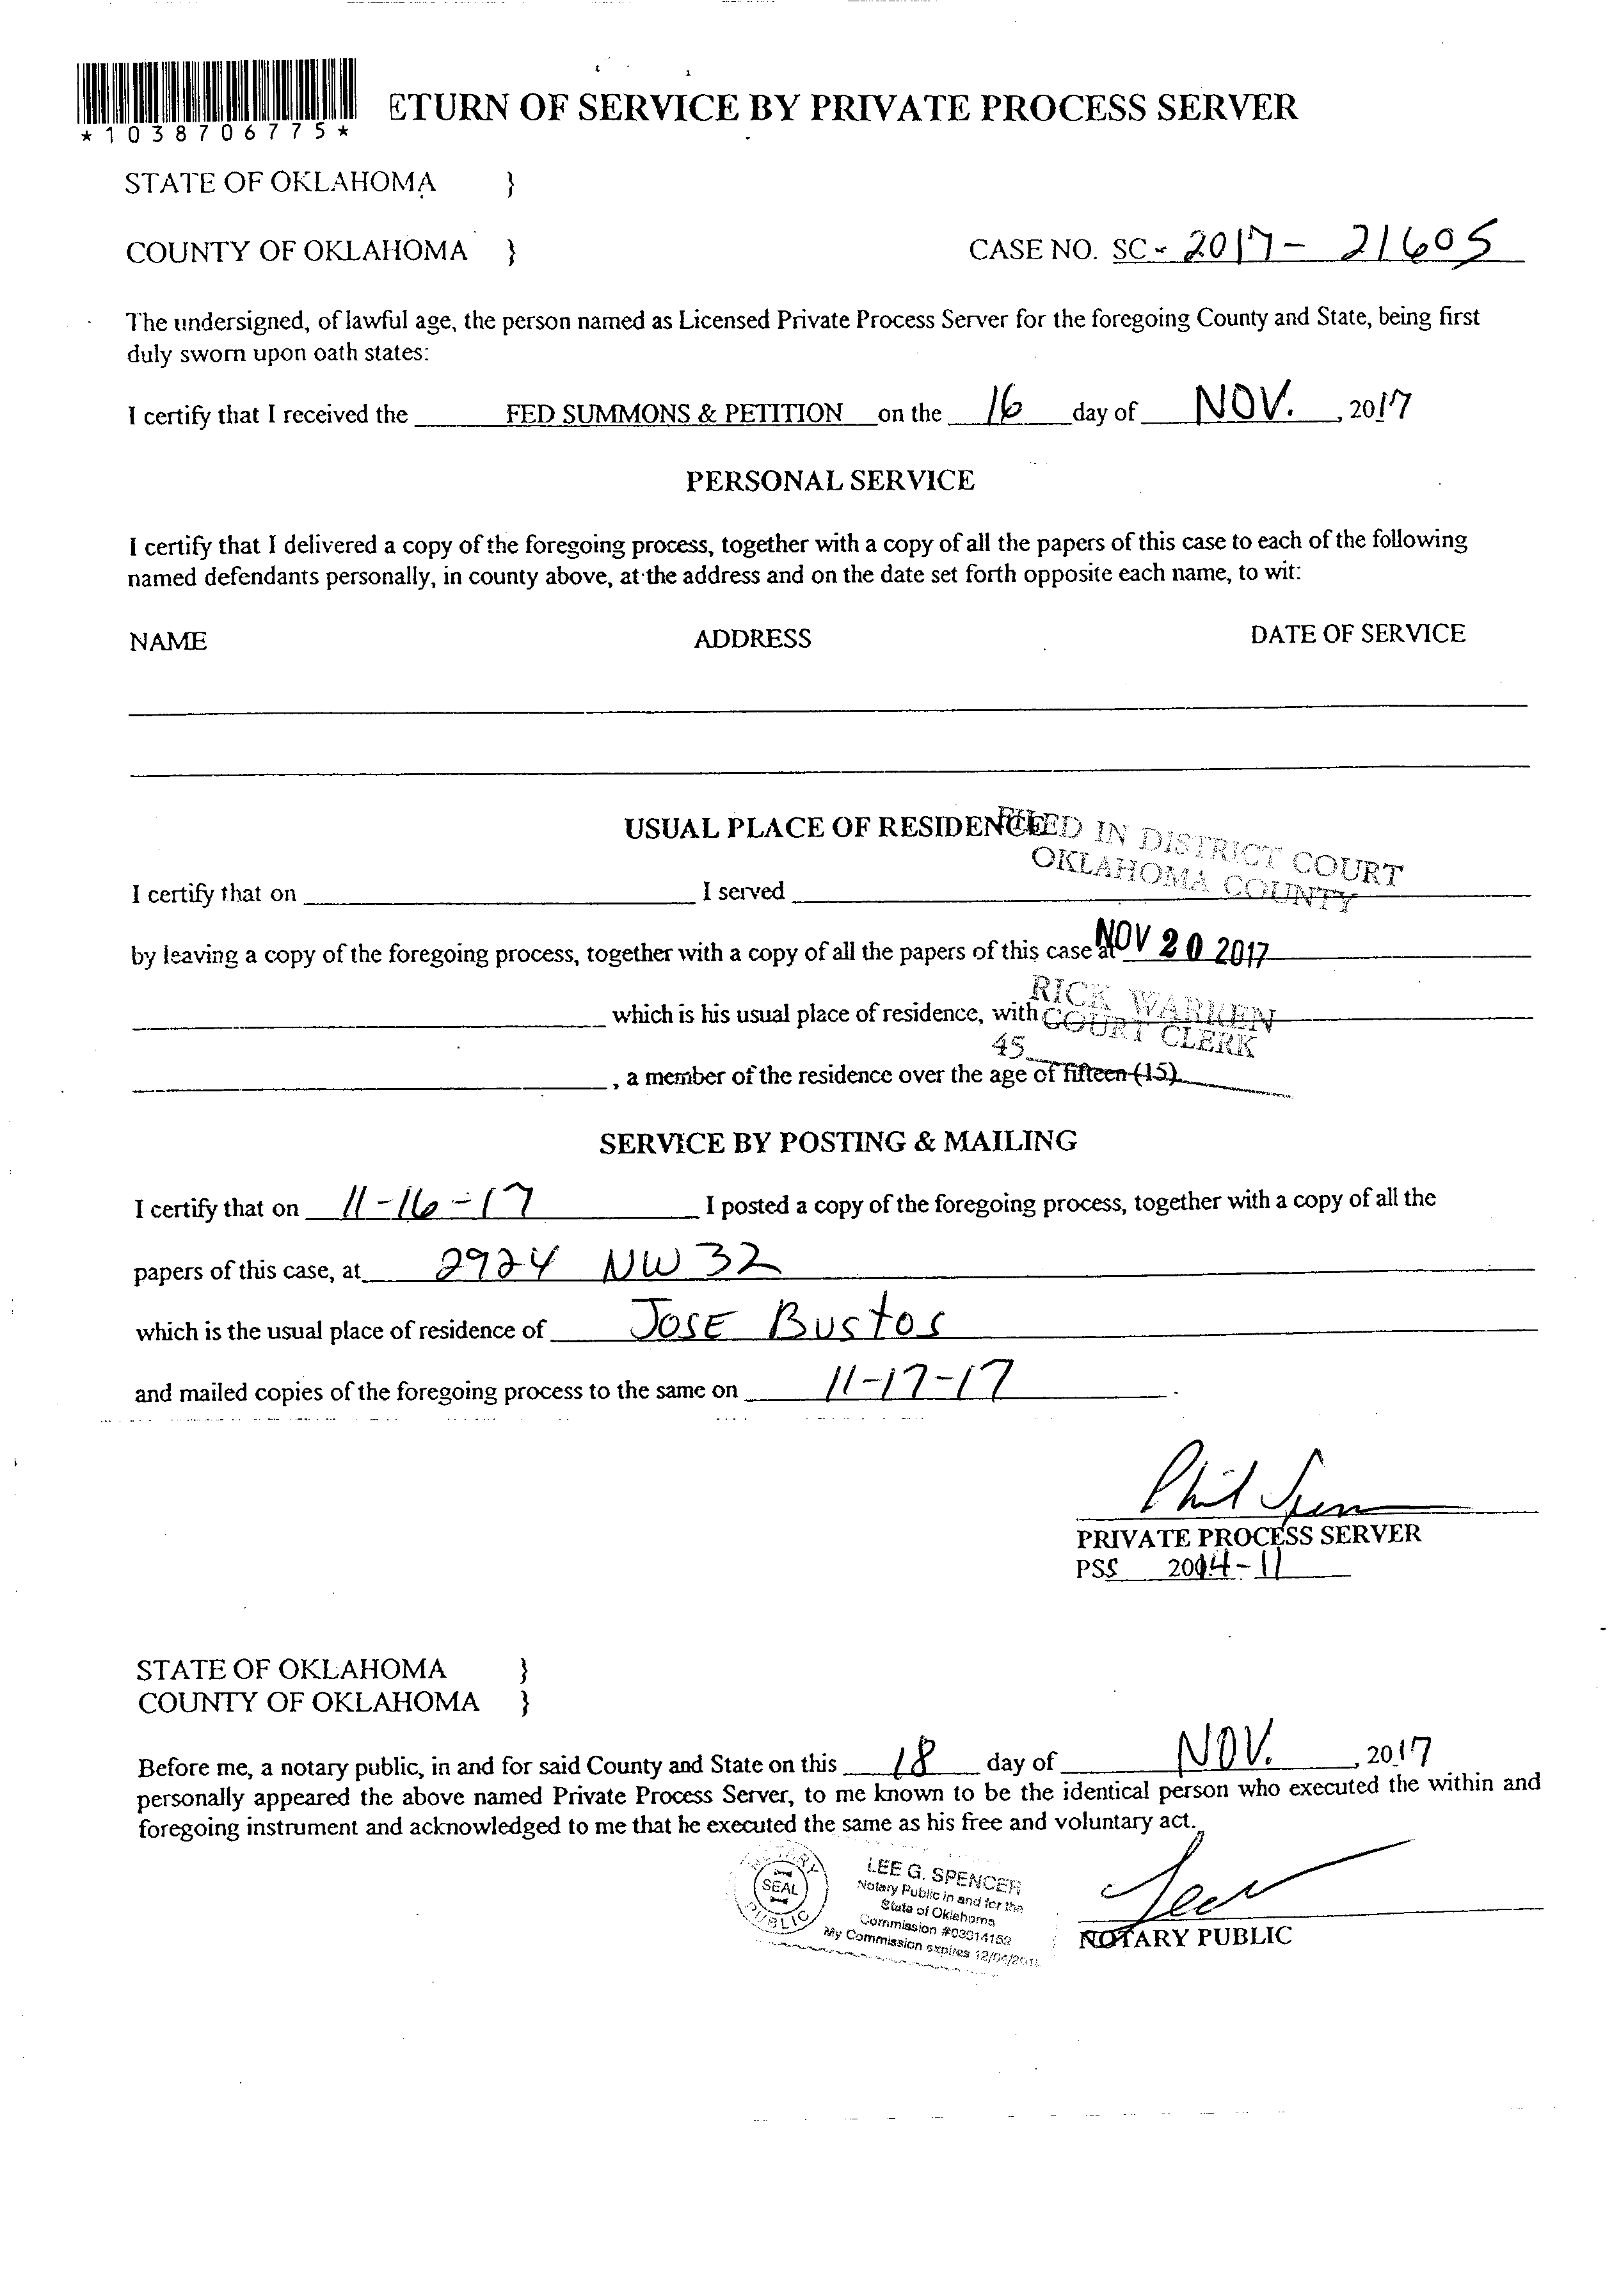 *1038706775*
ETURN OF SERVICE BY PRIVATE PROCESS SERVER
STATE OF OKLAHOMA }
COUNTY OF OKLAHOMA } CASE NO. SC - 2017 - 21605
The undersigned, of lawful age, the person named as Licensed Private Process Server for the foregoing County and State, being first
duly sworn upon oath states:
I certify that I received the FED SUMMONS & PETITION on the 16 day of NOV. , 2017
PERSONAL SERVICE
I certify that I delivered a copy of the foregoing process, together with a copy of all the papers of this case to each of the following
named defendants personally, in county above, at the address and on the date set forth opposite each name, to wit:
NAME ADDRESS DATE OF SERVICE
USUAL PLACE OF RESIDENCE
FILED IN DISTRICT COURT
OKLAHOMA COUNTY
I certify that on I served
by leaving a copy of the foregoing process, together with a copy of all the papers of this case at
NOV 20 2017
RICK WARREN
COURT CLERK
which is his usual place of residence, with
45
, a member of the residence over the age of fifteen (15)
SERVICE BY POSTING & MAILING
I certify that on 11-16-17 I posted a copy of the foregoing process, together with a copy of all the
papers of this case, at 2924 NW 32
which is the usual place of residence of JOSE BUSTOS
and mailed copies of the foregoing process to the same on 11-17-17 .
Phil
PRIVATE PROCESS SERVER
PSS 2014-11
STATE OF OKLAHOMA }
COUNTY OF OKLAHOMA }
Before me, a notary public, in and for said County and State on this 18 day of NOV. , 2017
personally appeared the above named Private Process Server, to me known to be the identical person who executed the within and
foregoing instrument and acknowledged to me that he executed the same as his free and voluntary act.
NOTARY
SEAL
PUBLIC
LEE G. SPENCER
Notary Public in and for the
State of Oklahoma
Commission #03014152
My Commission expires
NOTARY PUBLIC